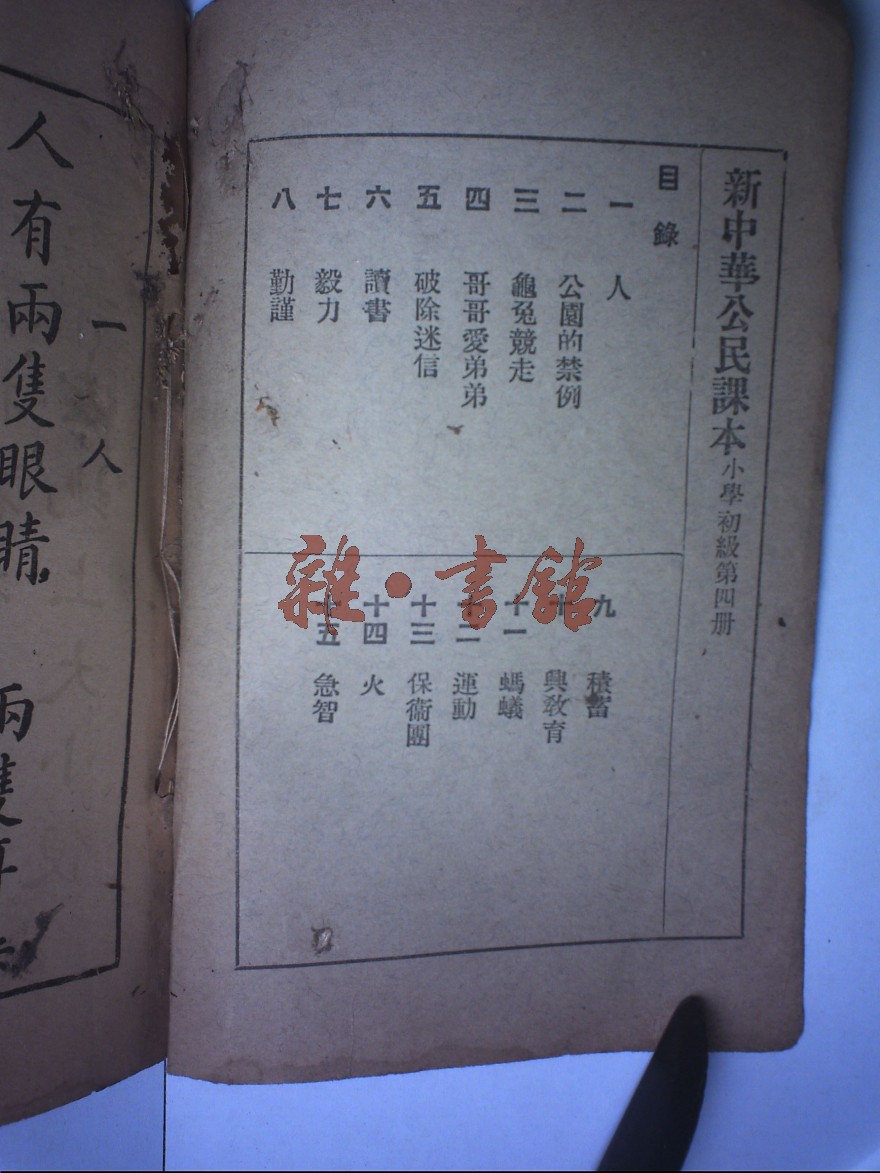 新中華公民課本小學初級第四册
目錄
一 人
二 公園的禁例
三 龜兔競走
四 哥哥愛弟弟
五 破除迷信
六 讀書
七 毅力
八 勤謹
九 積蓄
十 興教育
十一 螞蟻
十二 運動
十三 保衞團
十四 火
十五 急智
雜·書館
一 人
人有兩隻眼睛，
兩隻耳